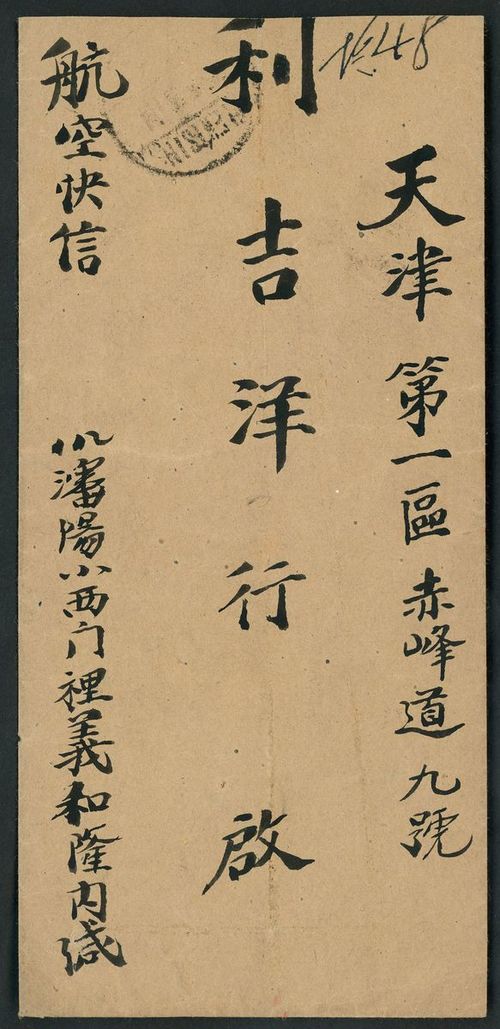 天津第一區赤峰道九號
利吉洋行啟
航空快信
瀋陽小西门裡義和隆内缄